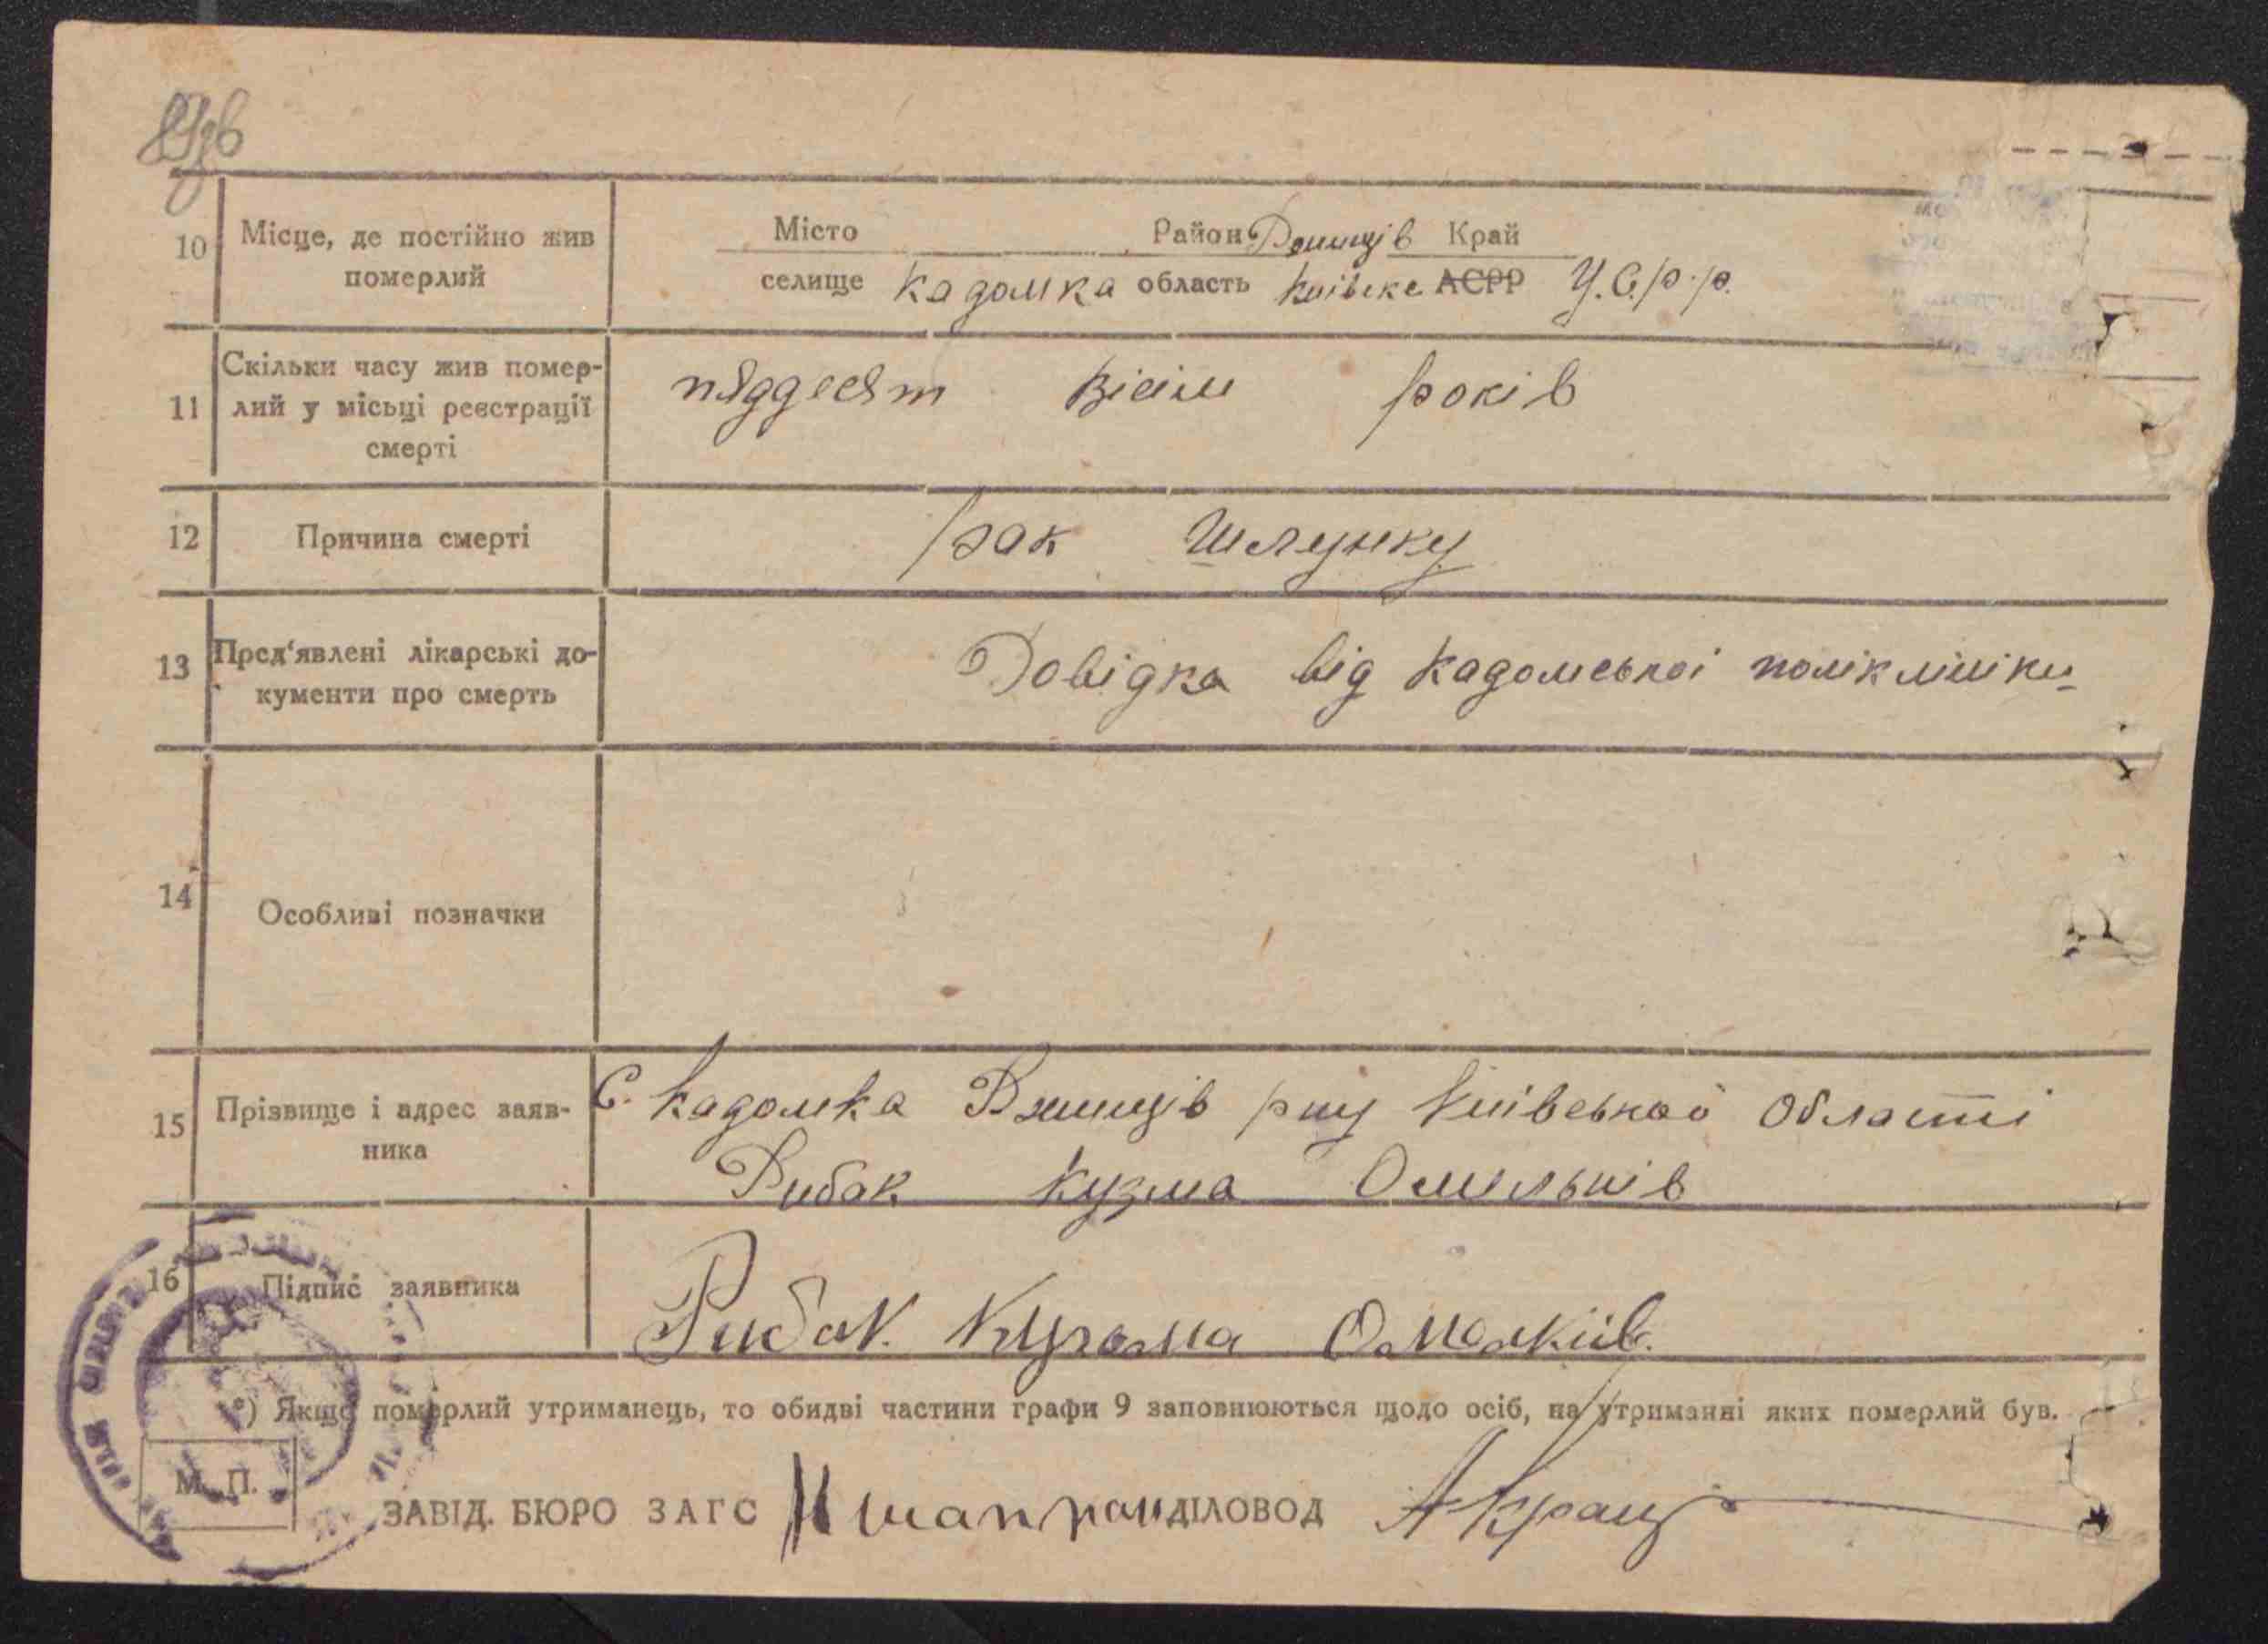 10 Місце, де постійно жив Місто Район Край
померлий селище Кадомка область Київске АСРР У.С.р.р.
Скільки часу жив помер-
11 лий у місьці реєстрації пяддесят вісім років
смерті
12 Причина смерті рак шлунку
13 Пред‘явлені лікарські до- Довідка від Кадомської поліклініки
кументи про смерть
14 Особливі позначки
15 Прізвище і адрес заяв- С. Кадомка р ну Київської Області
ника Рибак Кузма
16 Підпис заявника Рибак Кузьма
*) Якщо померлий утриманець, то обидві частини графи 9 заповнюються щодо осіб, на утриманні яких померлий був.
М. П.
ЗАВІД. БЮРО ЗАГС ДІЛОВОД